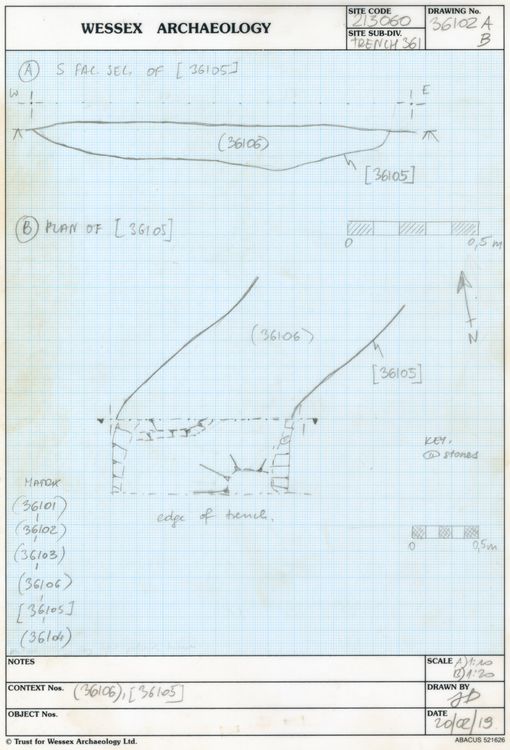 WESSEX ARCHAEOLOGY
SITE CODE
213060
SITE SUB-DIV.
TRENCH 361
DRAWING No.
36102 A
B
A S FAC. SEC. OF [36105]
W
E
(36106)
[36105]
B PLAN OF [36105]
0 0,5 m
(36106)
[36105]
N
KEY.
stones
edge of trench.
MATRIX
(36101)
(36102)
(36103)
(36106)
[36105]
(36104)
0 0,5m
NOTES
SCALE A) 1:10
B) 1:20
CONTEXT Nos. (36106), [36105]
DRAWN BY
OBJECT Nos.
DATE
20/02/19
© Trust for Wessex Archaeology Ltd.
ABACUS 521626